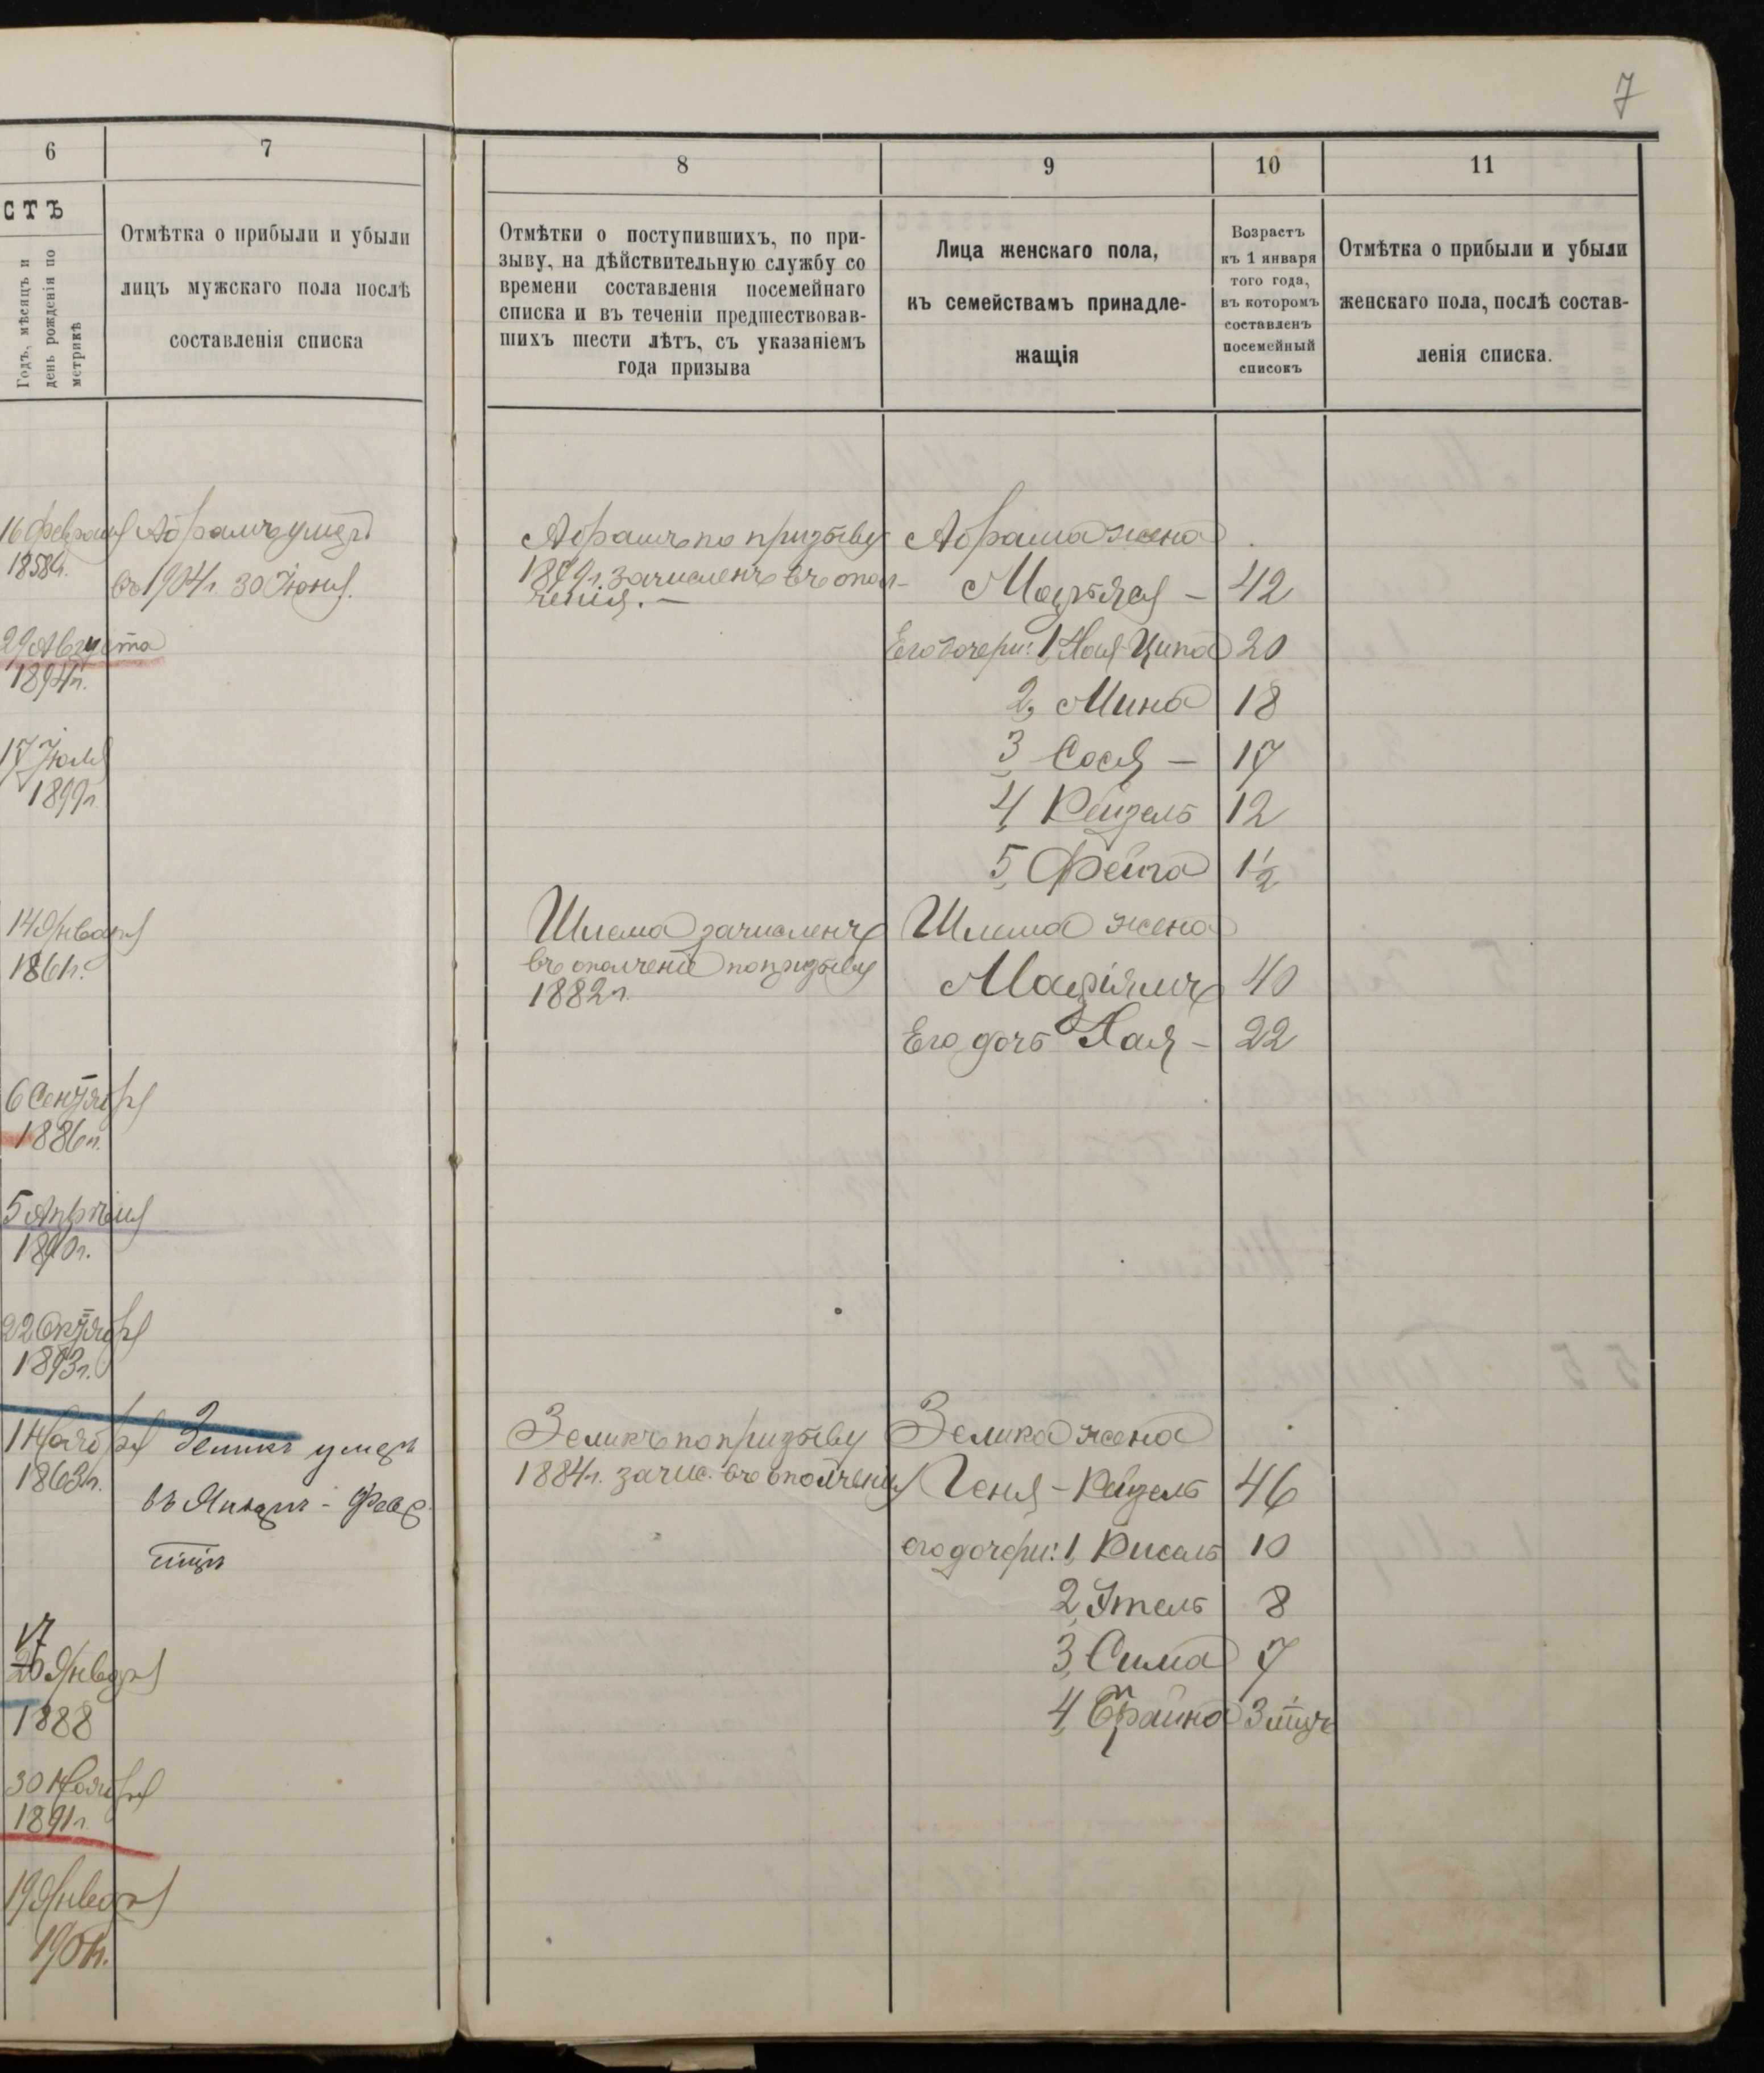 7
6
7
8
9
10
11
СТЪ
Годъ, мѣсяцъ и
день рожденія по
метрикѣ
Отмѣтка о прибыли и убыли
лицъ мужскаго пола послѣ
составленія списка
Отмѣтки о поступившихъ, по при-
зыву, на дѣйствительную службу со
времени составленія посемейнаго
списка и въ теченіи предшествовав-
шихъ шести лѣтъ, съ указаніемъ
года призыва
Лица женскаго пола,
къ семействамъ принадле-
жащія
Возрастъ
къ 1 января
того года,
въ которомъ
составленъ
посемейный
списокъ
Отмѣтка о прибыли и убыли
женскаго пола, послѣ состав-
ленія списка.
16 Февраля
1858 г.
Абрамъ умеръ
въ 1904 г. 30 Іюня.
Абрамъ по призыву
1879 г. зачисленъ въ опол-
ченія. —
Абрама жена
42
Его дочери: 1, Хая-Ципа 20
2, Мина 18
3, Сося — 17
4, Рейзель 12
5, Фейга 1½
29 Августа
1894 г.
17 Іюля
1899 г.
14 Января
1861 г.
Шлема зачисленъ
въ ополченіе по призыву
1882 г.
Шлема жена
Маріямъ 40
Его дочь Хая — 22
6 Сентября
1886 г.
5 Апрѣля
1890 г.
22 Октября
1893 г.
1 Ноября
1863 г.
Зеликъ умеръ
въ
Зеликъ по призыву
1884 г. зачис. въ ополченія
Зелика жена
Геня-Рейзель 46
его дочери: 1, Рисаль 10
2, Этель 8
3, Сима 7
4, Брайна 3
17
20 Января
1888
30 Ноября
1891 г.
19 Января
1901 г.